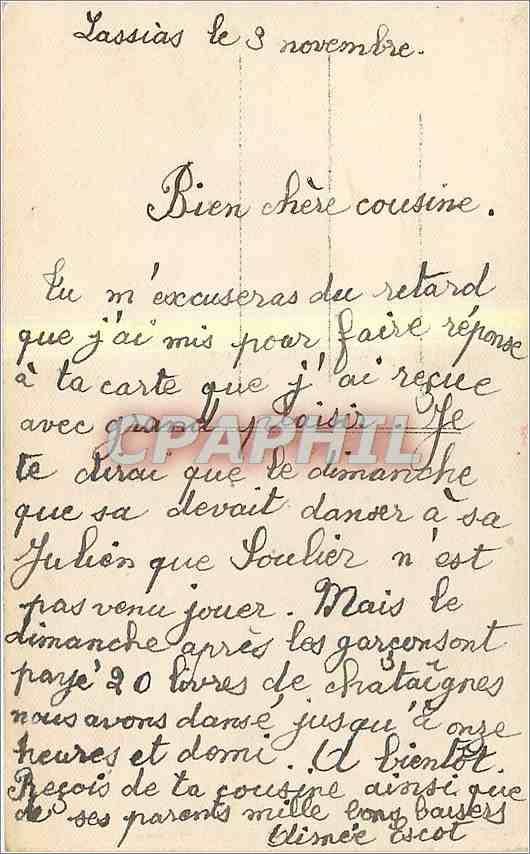 Lassias le 3 novembre.
Bien chère cousine.
Tu m'excuseras du retard
que j'ai mis pour faire réponse
à ta carte que j'ai reçue
avec grand plaisir. Je
CPAPHIL
te dirai que le dimanche
que sa devait danser à sa
Julien que Soulier n'est
pas venu jouer. Mais le
dimanche après les garçons ont
payé 20 livres de chataîgnes
nous avons dansé jusqu'à onze
heures et domi. A bientôt.
Reçois de ta cousine ainsi que
de ses parents mille bons baisers
Aimée Escot